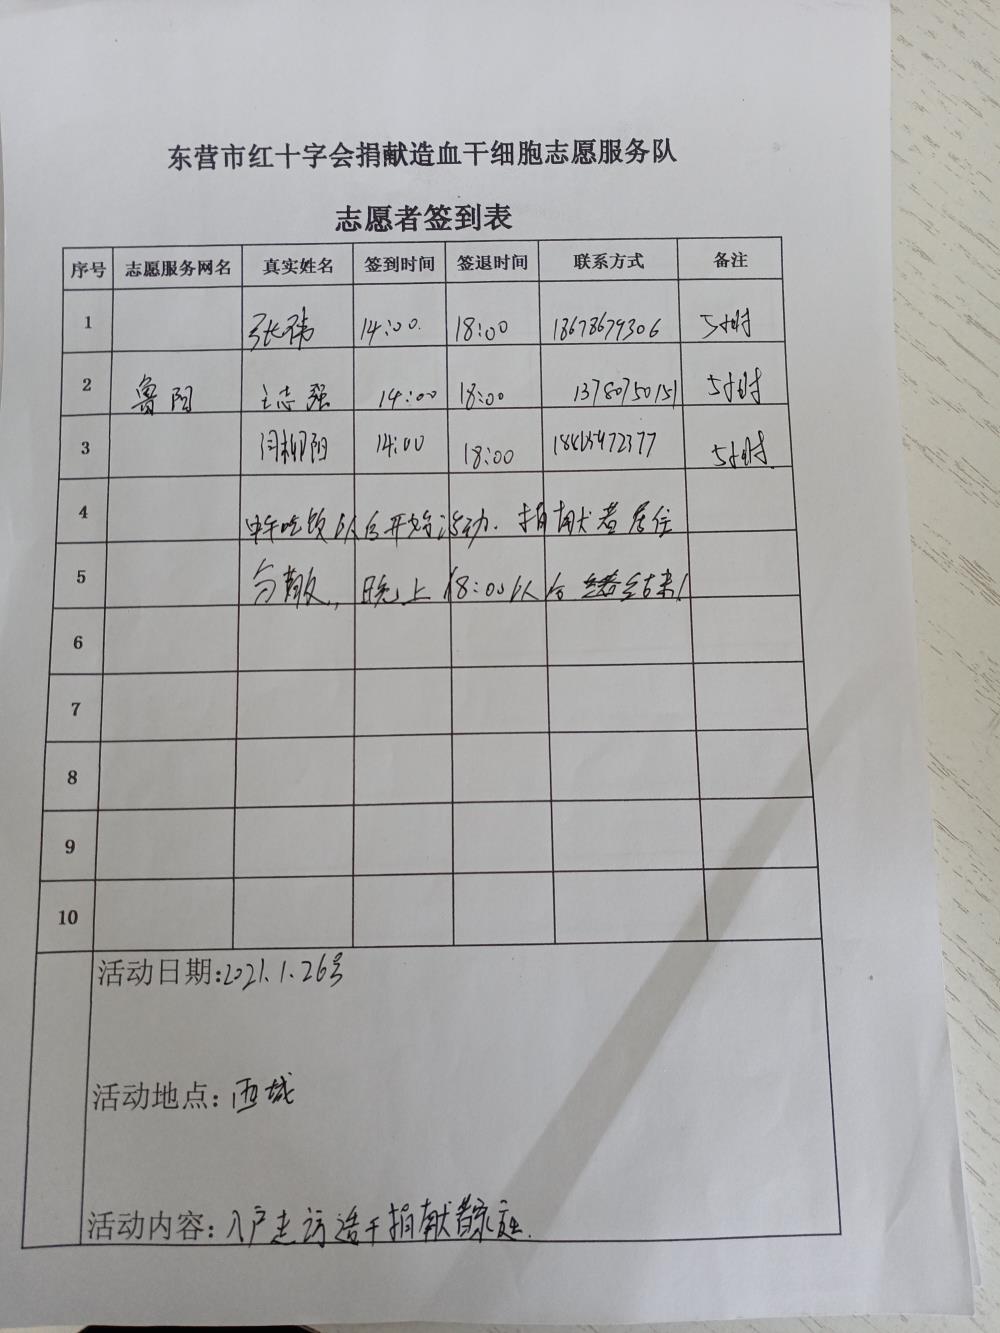 东营市红十字会捐献造血干细胞志愿服务队
志愿者签到表
序号 志愿服务网名 真实姓名 签到时间 签退时间 联系方式 备注
1 张伟 14:00. 18:00 18678679306 5小时
2 鲁阳 王志强 14:00 18:00 13780750151 5小时
3 闫柳阳 14:00 18:00 18465472377 5小时.
4 中午吃饭以后开始活动. 捐献者居住
5 晚上18:00以后 结束!
6
7
8
9
10
活动日期:2021.1.26号
活动地点: 西城
活动内容: 入户走访造干捐献者家庭.